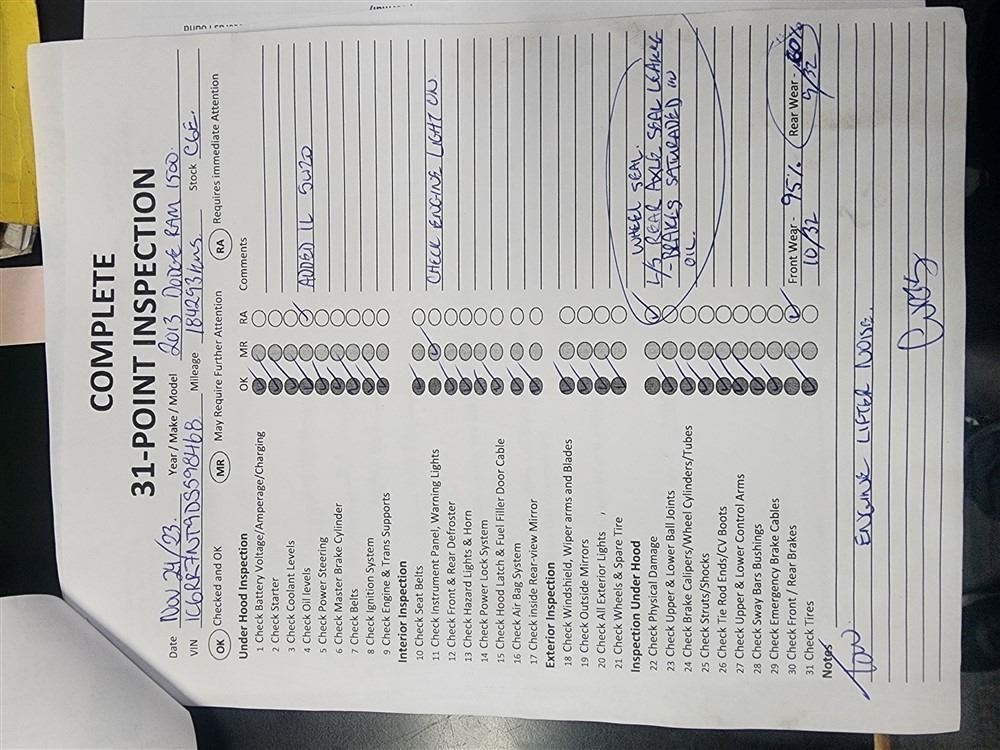 COMPLETE
31-POINT INSPECTION
Date Nov 24/23. Year / Make / Model 2013 DODGE RAM 1500.
VIN 1C6RR7NT9DS598468 Mileage 184293kms. Stock C6E.
OK Checked and OK MR May Require Further Attention RA Requires immediate Attention
Under Hood Inspection OK MR RA Comments
1 Check Battery Voltage/Amperage/Charging
2 Check Starter
3 Check Coolant Levels
4 Check Oil levels ADDED 1L 5W20
5 Check Power Steering
6 Check Master Brake Cylinder
7 Check Belts
8 Check Ignition System
9 Check Engine & Trans Supports
Interior Inspection
10 Check Seat Belts
11 Check Instrument Panel, Warning Lights CHECK ENGINE LIGHT ON.
12 Check Front & Rear Defroster
13 Check Hazard Lights & Horn
14 Check Power Lock System
15 Check Hood Latch & Fuel Filler Door Cable
16 Check Air Bag System
17 Check Inside Rear-view Mirror
Exterior Inspection
18 Check Windshield, Wiper arms and Blades
19 Check Outside Mirrors
20 Check All Exterior Lights
21 Check Wheels & Spare Tire
Inspection Under Hood WHEEL SEAL.
22 Check Physical Damage L/S REAR AXLE SEAL LEAKING
23 Check Upper & Lower Ball Joints - BRAKES SATURADED IN
24 Check Brake Calipers/Wheel Cylinders/Tubes OIL.
25 Check Struts/Shocks
26 Check Tie Rod Ends/CV Boots
27 Check Upper & Lower Control Arms
28 Check Sway Bars Bushings
29 Check Emergency Brake Cables
30 Check Front / Rear Brakes Front Wear - 95% Rear Wear - 60%
31 Check Tires 10/32 9/32
Notes
ENGINE LIFTER NOISE.